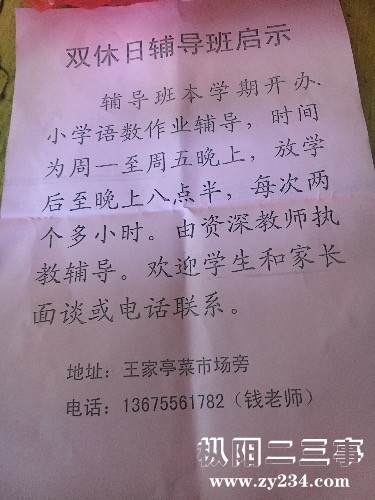 双休日辅导班启示
辅导班本学期开办.
小学语数作业辅导，时间
为周一至周五晚上，放学
后至晚上八点半，每次两
个多小时。由资深教师执
教辅导。欢迎学生和家长
面谈或电话联系。
地址：王家亭菜市场旁
电话：13675561782（钱老师）
枞阳二三事
www.zy234.com